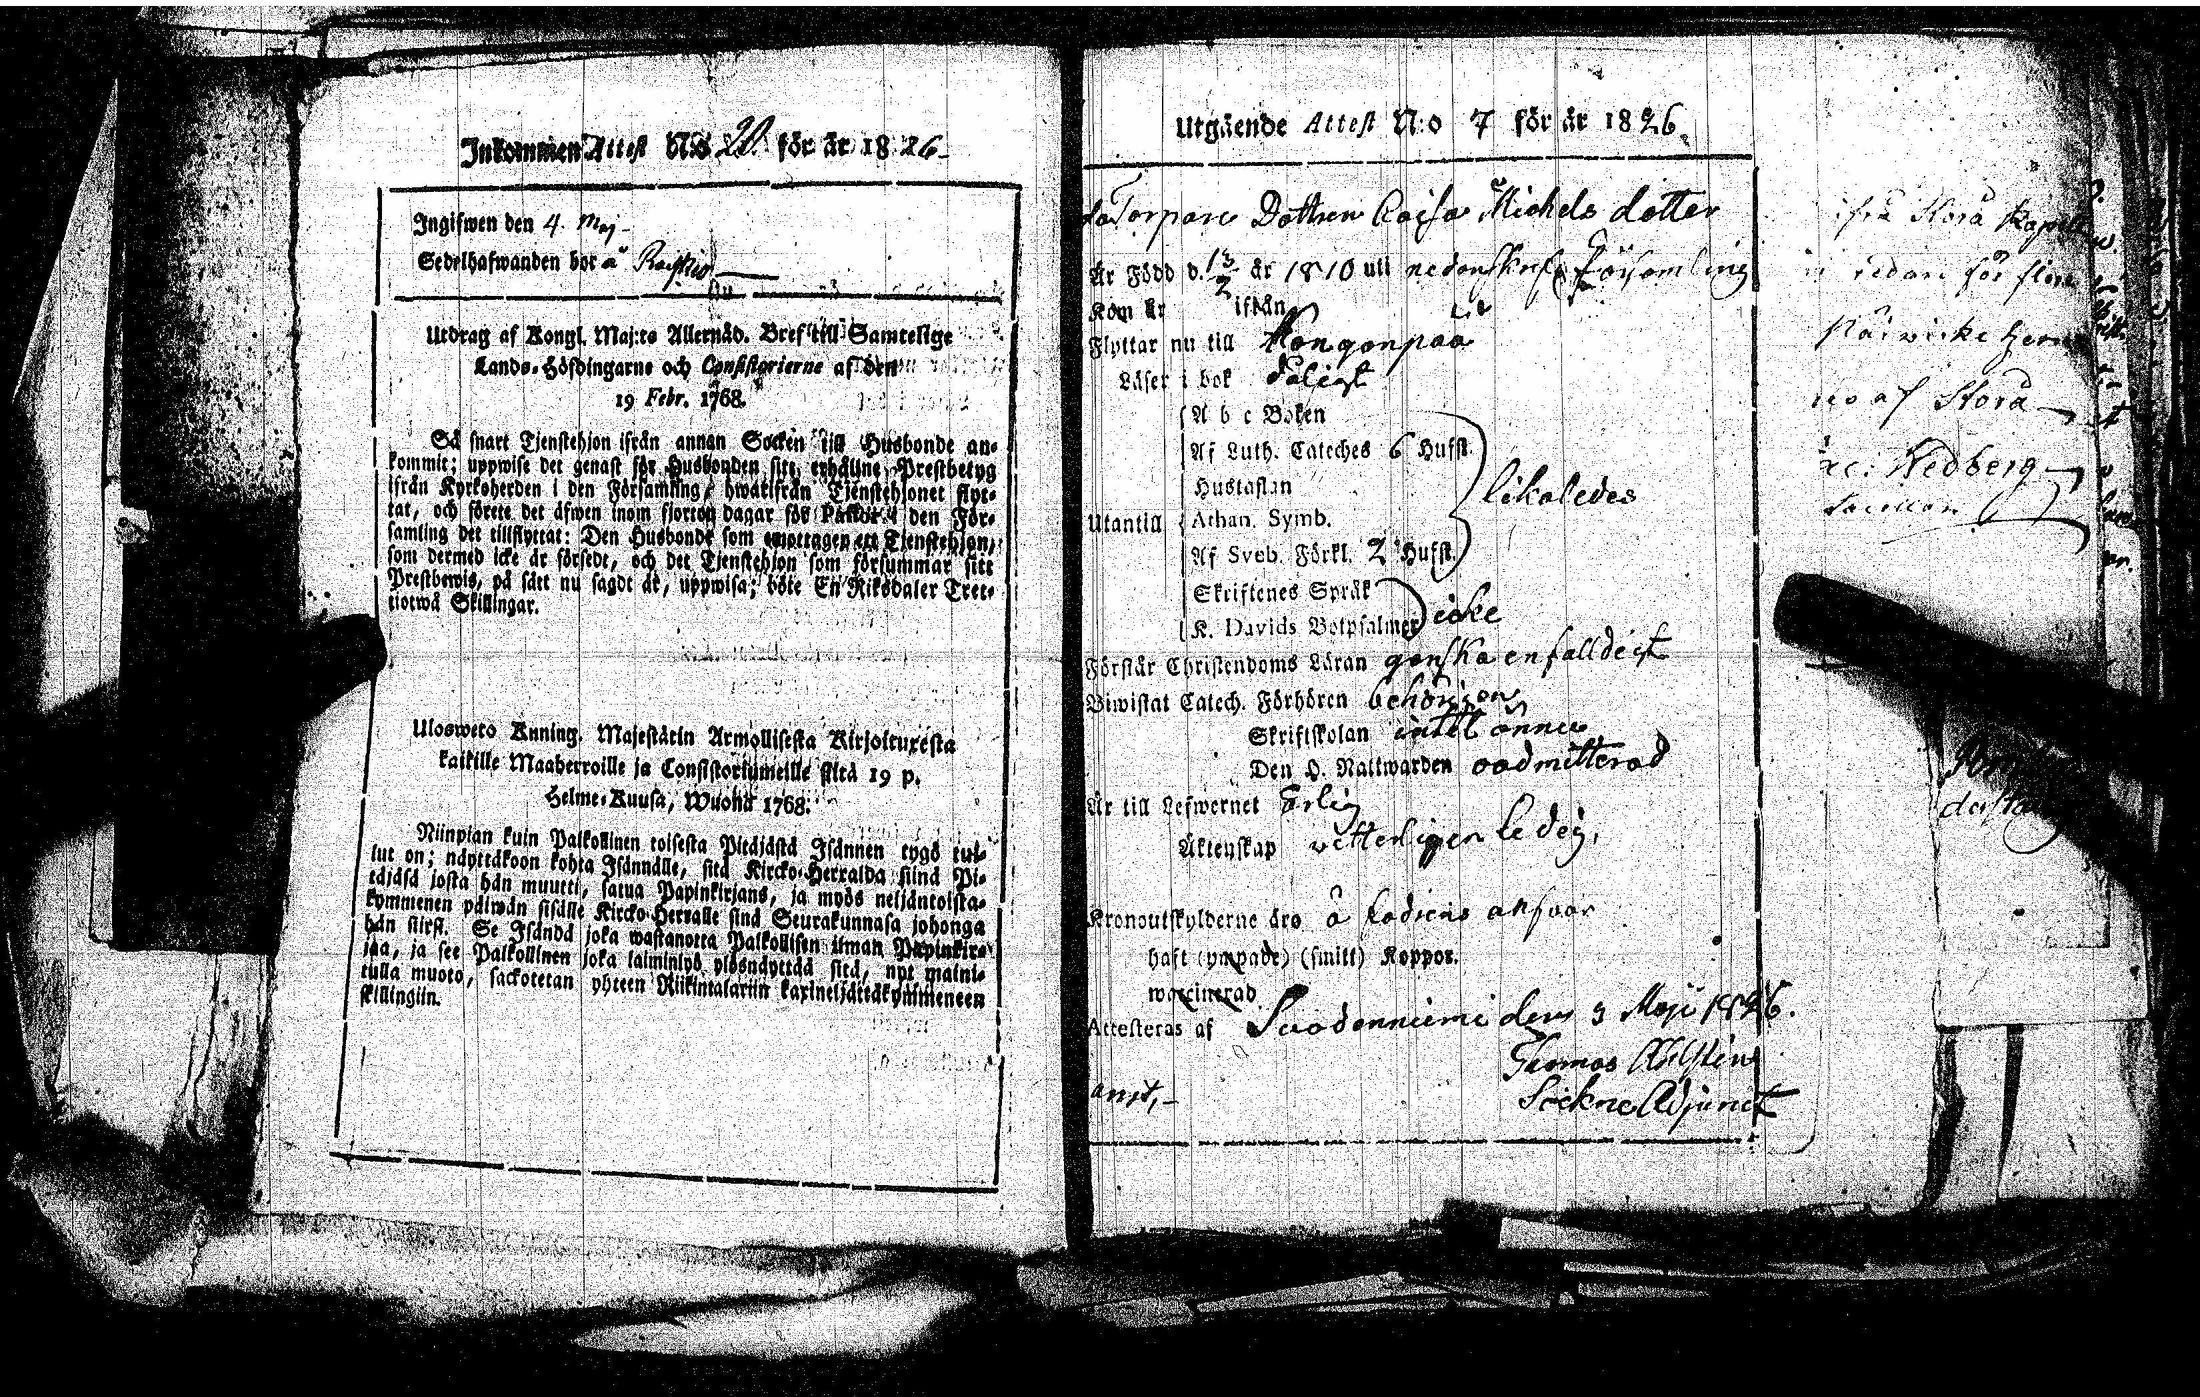 Inkommen Attest N:o 20. för år 1826.
Ingifwen den 4. Maj.
Sedelhafwanden bor å
Utdrag af Kongl. Maj:ts Allernåd. Bref till Samtelige
Lands-Höfdingarne och Consistorierne af den
19 Febr. 1768.
Så snart Tjenstehjon ifrån annan Socken till Husbonde an-
kommit; uppwise det genast för Husbonden sitt erhållne Prestbetyg
ifrån Kyrkoherden i den Församling, hwarifrån Tjenstehjonet flyt-
tat, och förete det äfwen inom fjorton dagar för Pastor i den För-
samling det tillflyttat: Den Husbonde som emottager ett Tjenstehjon,
som dermed icke är försedt, och det Tjenstehjon som försummar sitt
Prestbewis, på sätt nu sagdt är, uppwisa; böte En Riksdaler Tret-
tiotwå Skillingar.
Ulosweto Kuning. Majestätin Armollisesta Kirjoituxesta
kaikille Maaherroille ja Consistoriumeille siitä 19 p.
Helme-Kuusa, Wuonna 1768.
Niinpian kuin Palkollinen toisesta Pitäjästä Isännen tygö tul-
lut on; näyttäkoon kohta Isännälle, sitä Kircko-Herralda siinä Pi-
täjäsä josta hän muutti, saatua Papinkirjans, ja myös neljäntoista-
kymmenen päiwän sisälle Kircko-Herralle siinä Seurakunnasa johonga
hän siirsi. Se Isändä joka wastanotta Palkollisen ilman Papinkir-
jaa, ja see Palkollinen joka laiminlyö ylösnäyttää sitä, nyt maini-
tulla muoto, sackotetan yhteen Riikintalariin kaxineljättäkymmeneen
skillingiin.
Utgående Attest N:o 7 för år 1826.
Torpare Dottren Caisa Michels dotter
Är Född d. 13/2 år 1810 uti nedanskrifne Församling
Kom år ifrån
Flyttar nu till Kongonpää
Läser i bok dåligt
A b c Boken
Af Luth. Cateches 6 Hufst.
Hustaflan
Utantill Athan. Symb. likaledes
Af Sveb. Förkl. 2 Hufst.
Skriftenes Språk
K. Davids Botpsalmer icke
Förstår Christendoms Läran ganska enfalldigt
Biwistat Catech. Förhören behörigen
Skriftskolan intet ännu
Den H. Nattwarden oadmitterad
Är till Lefwernet Ärlig
Äktenskap vetterligen ledig,
Kronoutskylderne äro å fadrens answar
haft (ympade) (smitt) Koppor.
waccinerad
Attesteras af Suodenniemi den 3 Maji 1826.
Thomas Ahlsten
Sockne Adjunct
ifrå Stora
redan för flere
af Stora
Hedberg